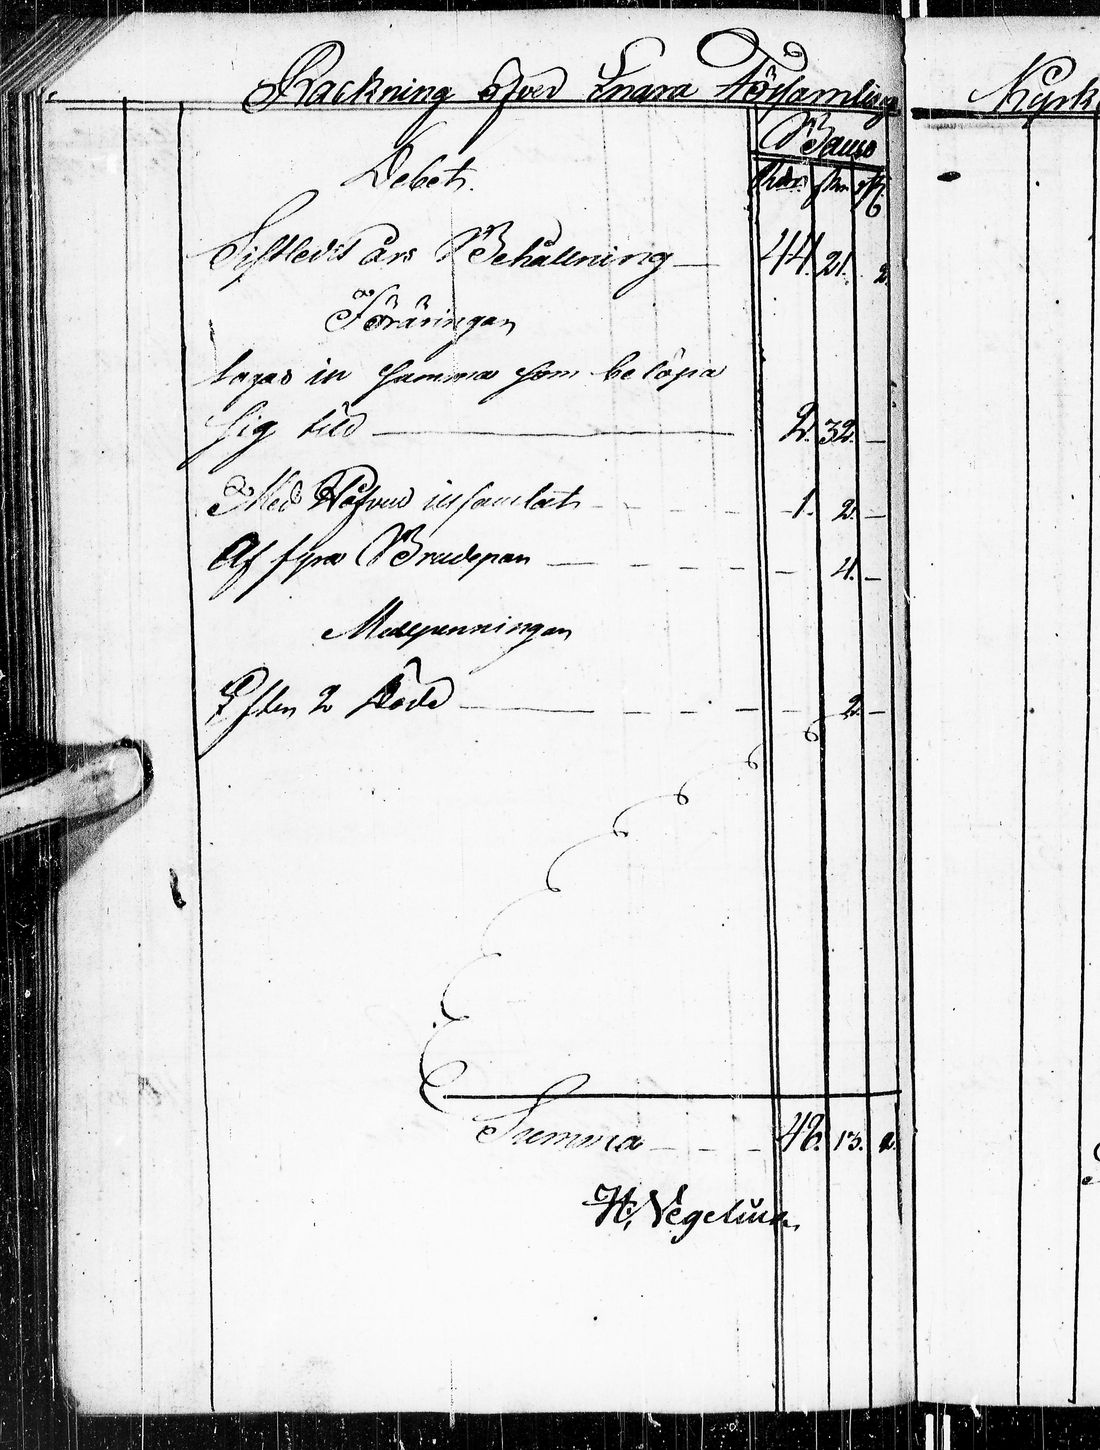 Räckning öfver Enara Församlings
Kyrk
Banco
Debet.
Rdr. sk. r.
Sistledit års Behållning 44. 21. 2.
Föräringar
tagas in samma som belöpa
sig till 2. 32. –
Med Håfven insamlat 1. 2. –
Af fyra Brudepar 4. –
Medepenningar
Efter 2 Döde 2. –
Summa 48. 13. 2.
H. Vegelius